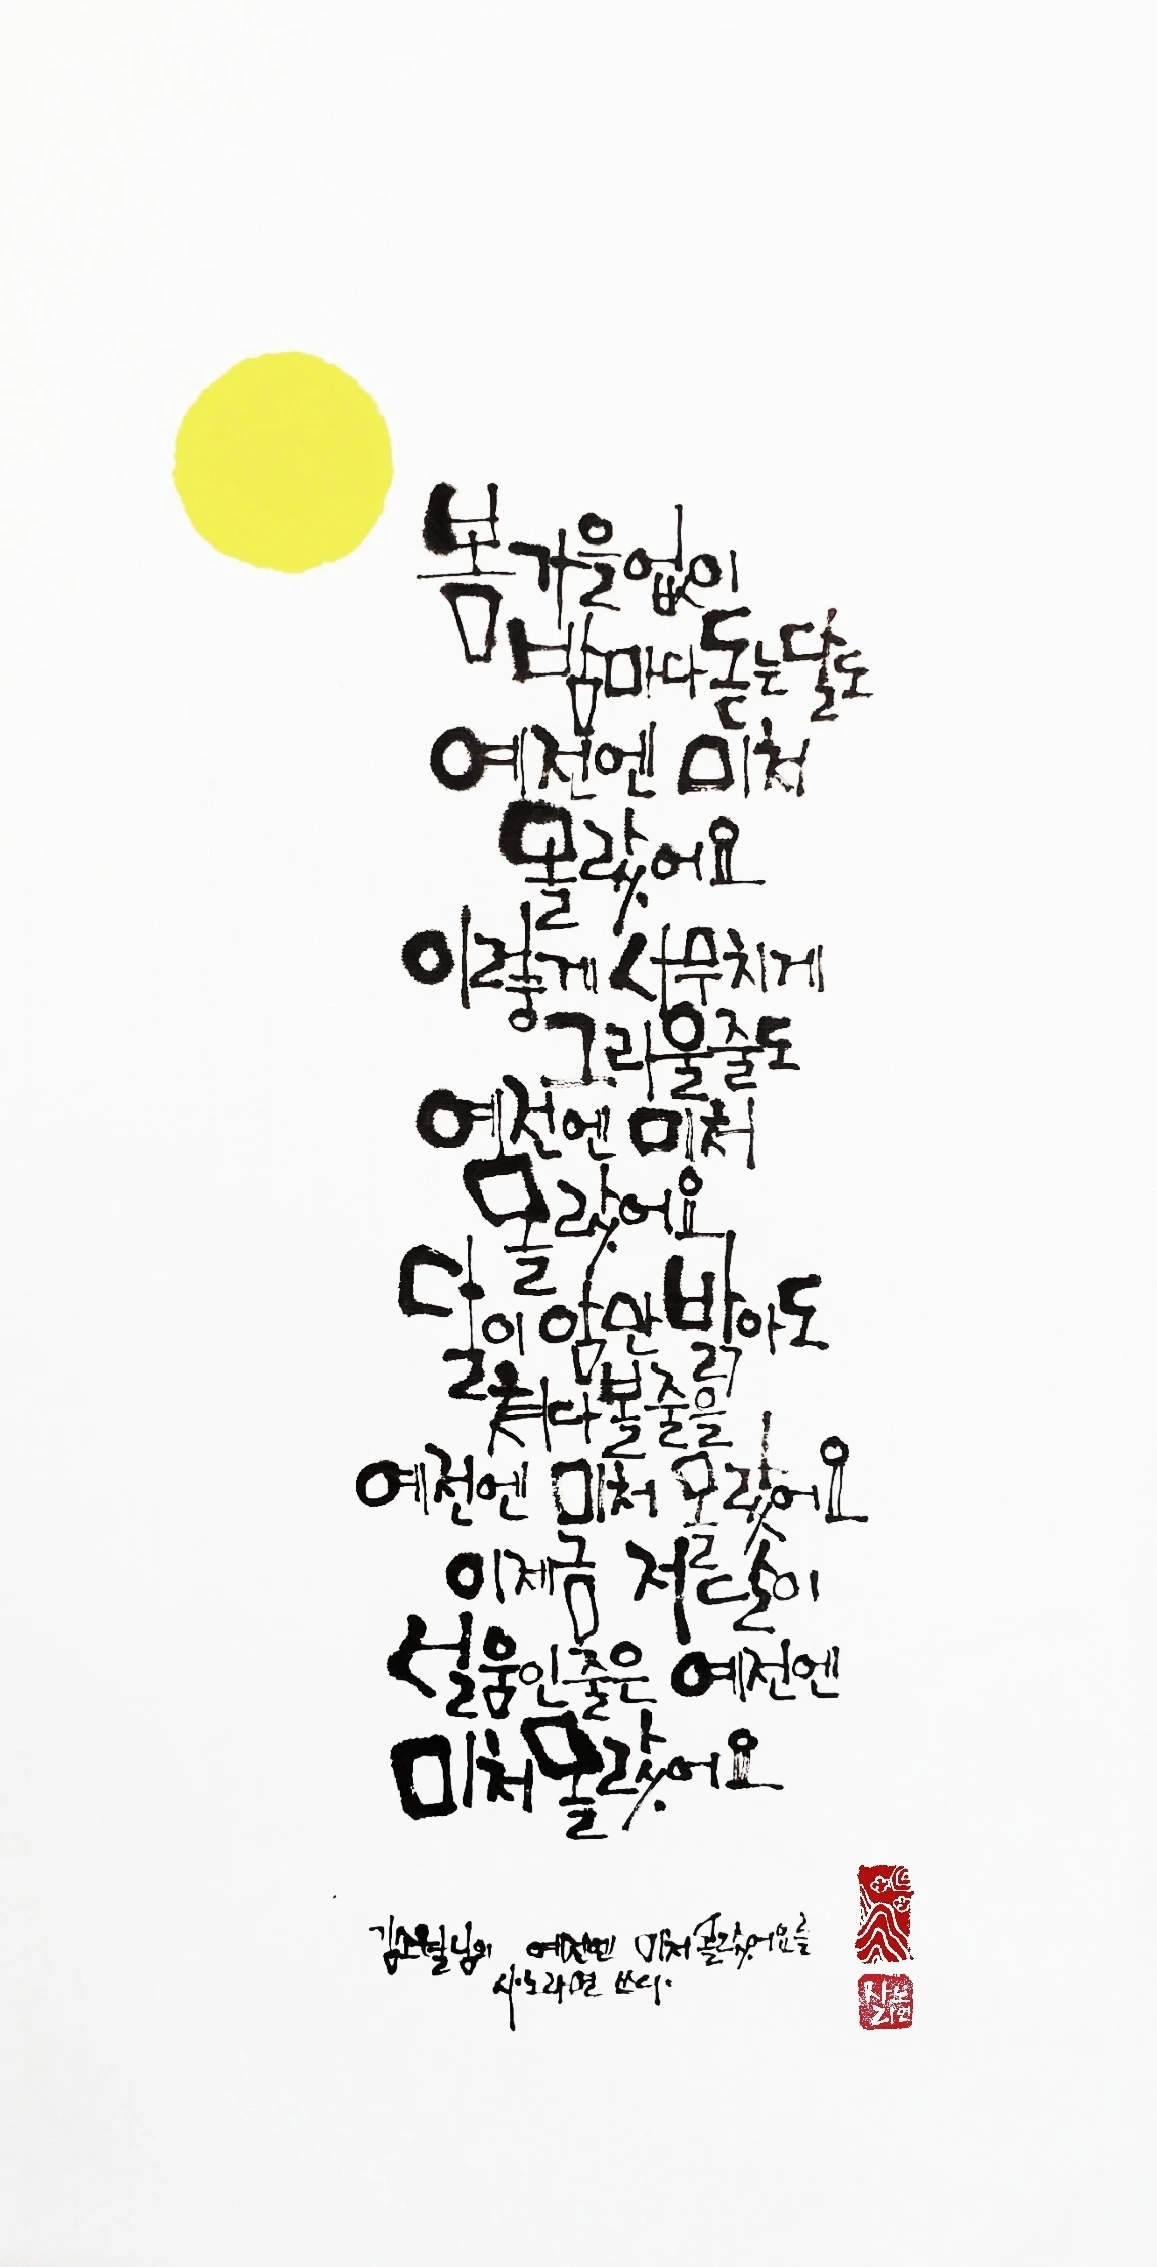 봄가을없이
밤마다돋는달도
예전엔 미처
몰랐어요
이렇게 사무치게
그리울줄도
예전엔 미처
몰랐어요
달이 암만 밝아도
쳐다볼줄을
예전엔 미처 몰랐어요
이제금 저달이
설움인줄은 예전엔
미처몰랐어요
김소월님의 예전엔 미처몰랐어요를
사노라면 쓰다.